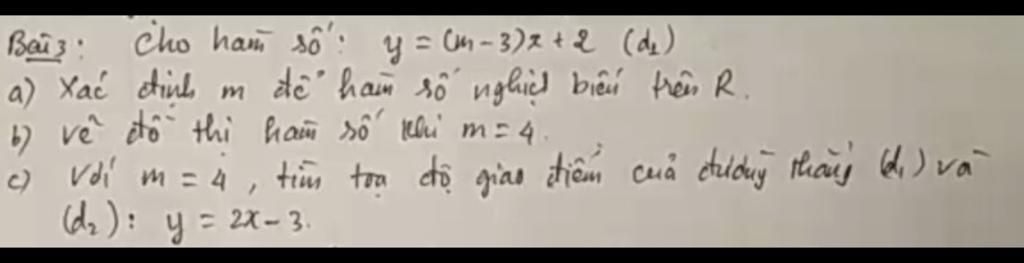 Bài 3: Cho hàm số: y = (m - 3)x + 2 (d₁)
a) Xác định m để hàm số nghịch biến trên R.
b) vẽ đồ thị hàm số khi m = 4.
c) Với m = 4, tìm toạ độ giao điểm của đường thẳng (d₁) và
(d₂): y = 2x - 3.